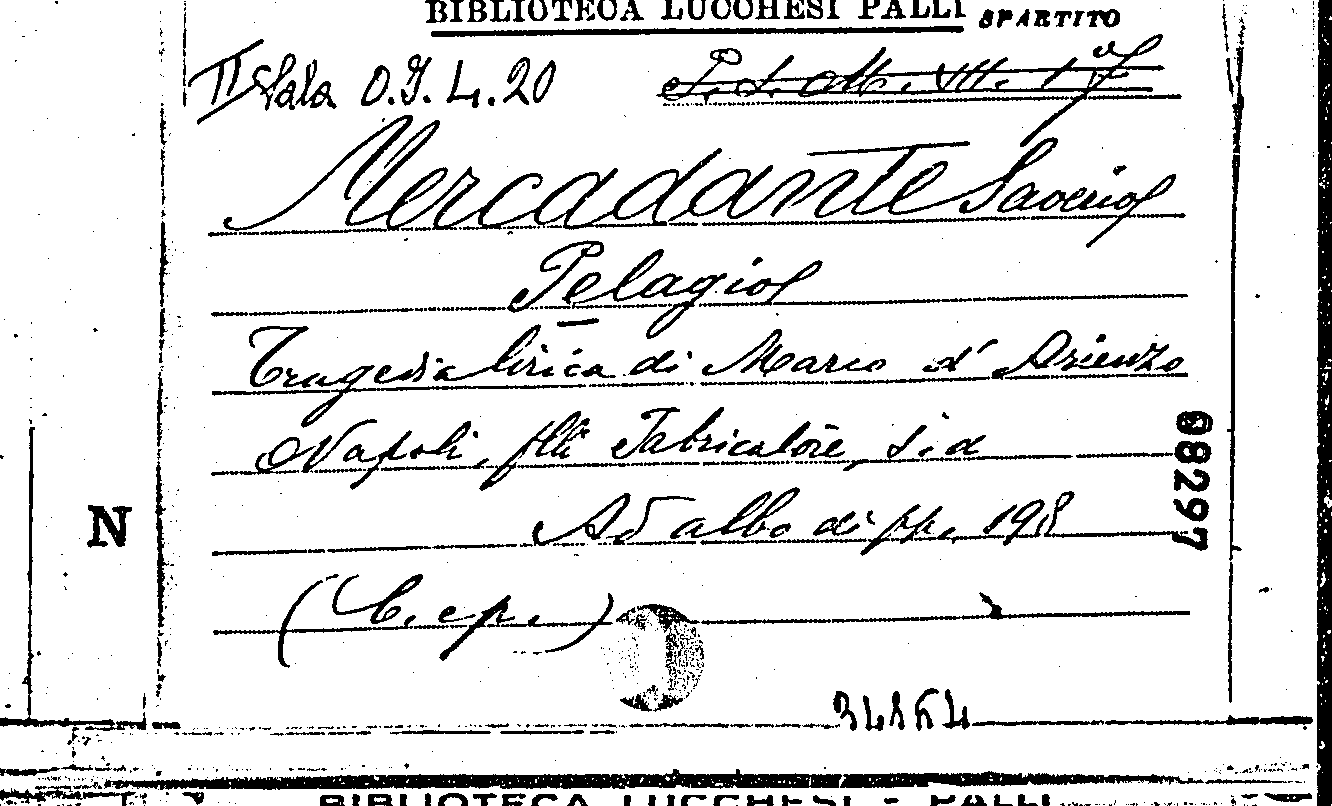 BIBLIOTECA LUCCHESI PALLI SPARTITO
II Sala O.9.4.20
Mercadante Saverio
Pelagio
Tragedia lirica di Marco d'Arienzo
Napoli, flli Fabricatore, s.d
Ad albo di pp. 198
08297
N
(C. ep.)
34864
BIBLIOTECA LUCCHESI - PALLI